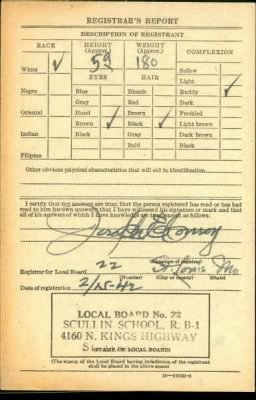 REGISTRAR'S REPORT
DESCRIPTION OF REGISTRANT
RACE HEIGHT (Approx.) WEIGHT (Approx.) COMPLEXION
White ✓ 59 180 Sallow
EYES HAIR Light
Negro Blue Blonde Ruddy ✓
Gray Red Dark
Oriental Hazel Brown Freckled
Brown ✓ Black ✓ Light brown
Indian Black Gray Dark brown
Bald Black
Filipino
Other obvious physical characteristics that will aid in identification
I certify that my answers are true; that the person registered has read or has had
read to him his own answers; that I have witnessed his signature or mark and that
all of his answers of which I have knowledge are true, except as follows:
Joseph E Conroy
(Signature of registrar)
Registrar for Local Board 22 St. Louis Mo
(Number) (City or county) (State)
Date of registration 2/15-42
LOCAL BOARD No. 22
SCULLIN SCHOOL, R. B-1
4160 N. KINGS HIGHWAY
(STAMP OF LOCAL BOARD)
(The stamp of the Local Board having jurisdiction of the registrant
shall be placed in the above space)